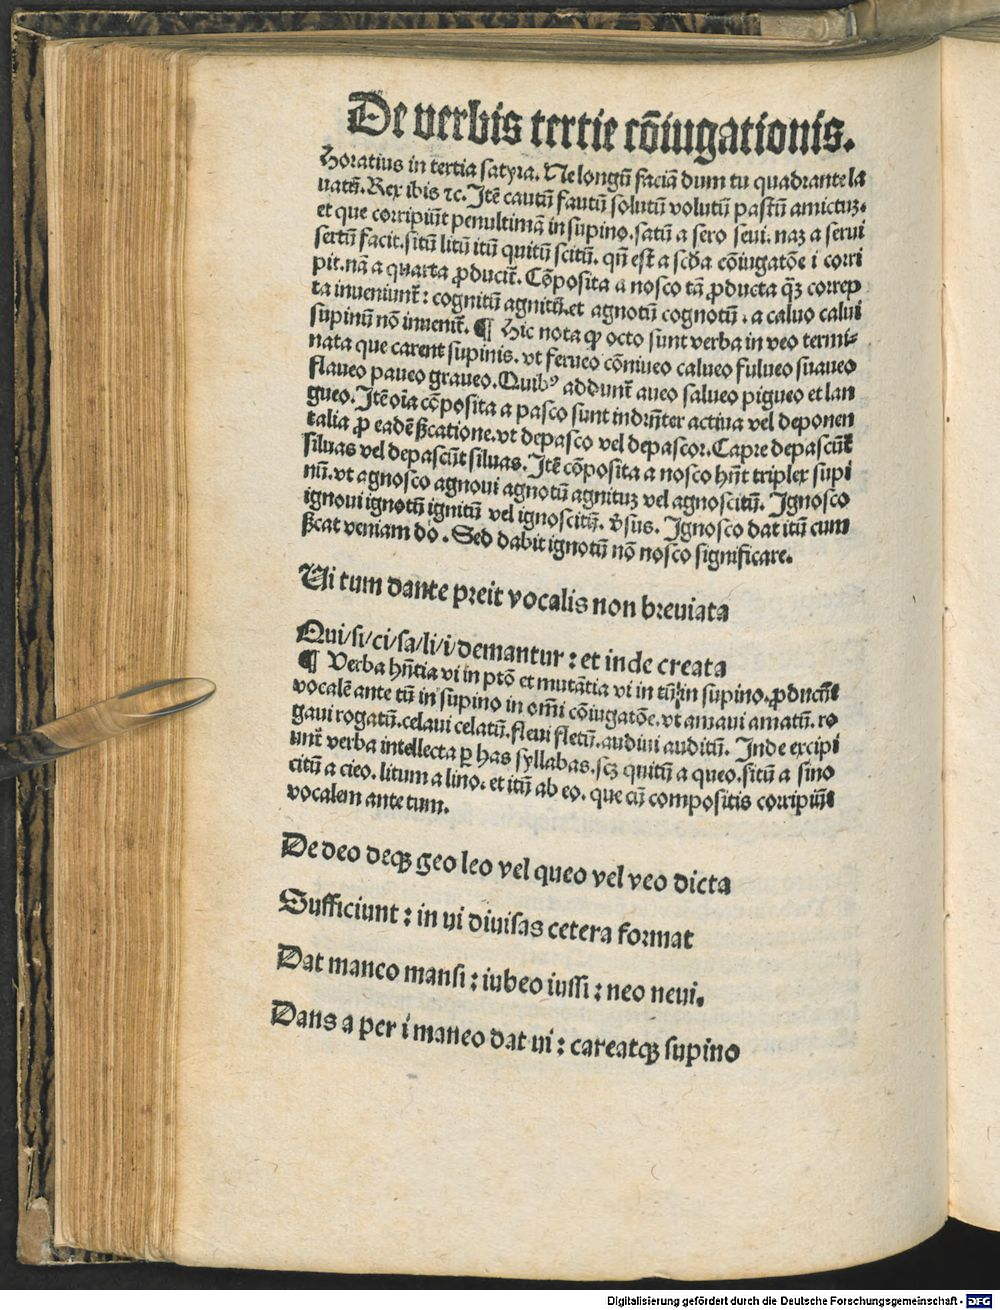 De verbis tertie cōiugationis.
Horatius in tertia satyra. Ne longū faciā dum tu quadrante la
uatū. Rex ibis ⁊c. Itē cautū fautū solutū volutū pastū amictuꝫ.
et que corripiūt penultimā in supino. satū a sero seui. naꝫ a serui
sertū facit. sitū litū itū quitū scitū. qn̄ est a scd̄a cōiugatōe i corri
pit. nā a quarta ꝓducit᷑. Cōposita a nosco tā ꝓducta q̄ꝫ correp
ta inueniunt᷑: cognitū agnitū. et agnotū cognotū. a caluo calui
supinū nō inuenit᷑. ¶ Hic nota ꝙ octo sunt verba in veo termi⸗
nata que carent supinis. vt ferueo cōniueo calueo fulueo suaueo
flaueo paueo graueo. Quibꝰ addunt᷑ aueo salueo pigueo et lan
gueo. Itē oīa cōposita a pasco sunt indrn̄ter actiua vel deponen
talia ꝓ eadē ßcatione. vt depasco vel depascor. Capre depascūt᷑
siluas vel depascūt siluas. Itē cōposita a nosco hn̄t triplex supi
nū. vt agnosco agnoui agnotū agnituꝫ vel agnoscitū. Ignosco
ignoui ignotū ignitū vel ignoscitū. v̄sus. Ignosco dat itū cum
ßcat veniam do. Sed dabit ignotū nō nosco significare.
Ui tum dante preit vocalis non breuiata
Qui/si/ci/sa/li/i/demantur: et inde creata
¶ Verba hn̄tia vi in ptō et mutātia vi in tū in supino. ꝓducūt
vocalē ante tū in supino in om̄i cōiugatōe. vt amaui amatū. ro
gaui rogatū. celaui celatū. fleui fletū. audiui auditū. Inde excipi
unt᷑ verba intellecta ꝑ has syllabas. scꝫ quitū a queo. sitū a sino
citū a cieo. litum a lino. et itū ab eo. que cū compositis corripiūt
vocalem ante tum.
De deo deqꝫ geo leo vel queo vel veo dicta
Sufficiunt: in ui diuisas cetera format
Dat maneo mansi: iubeo iussi: neo neui.
Dans a per i maneo dat ui: careatqꝫ supino
Digitalisierung gefördert durch die Deutsche Forschungsgemeinschaft - DFG